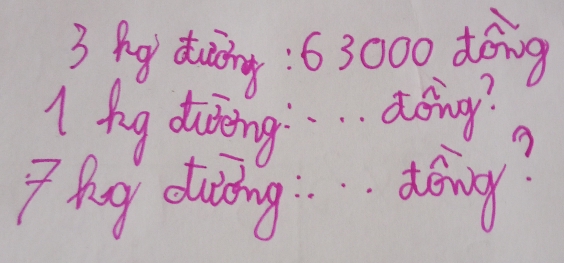 3 kg đường : 63000 đồng
1 kg đường: ... đồng?
7 kg đường: ... đồng?